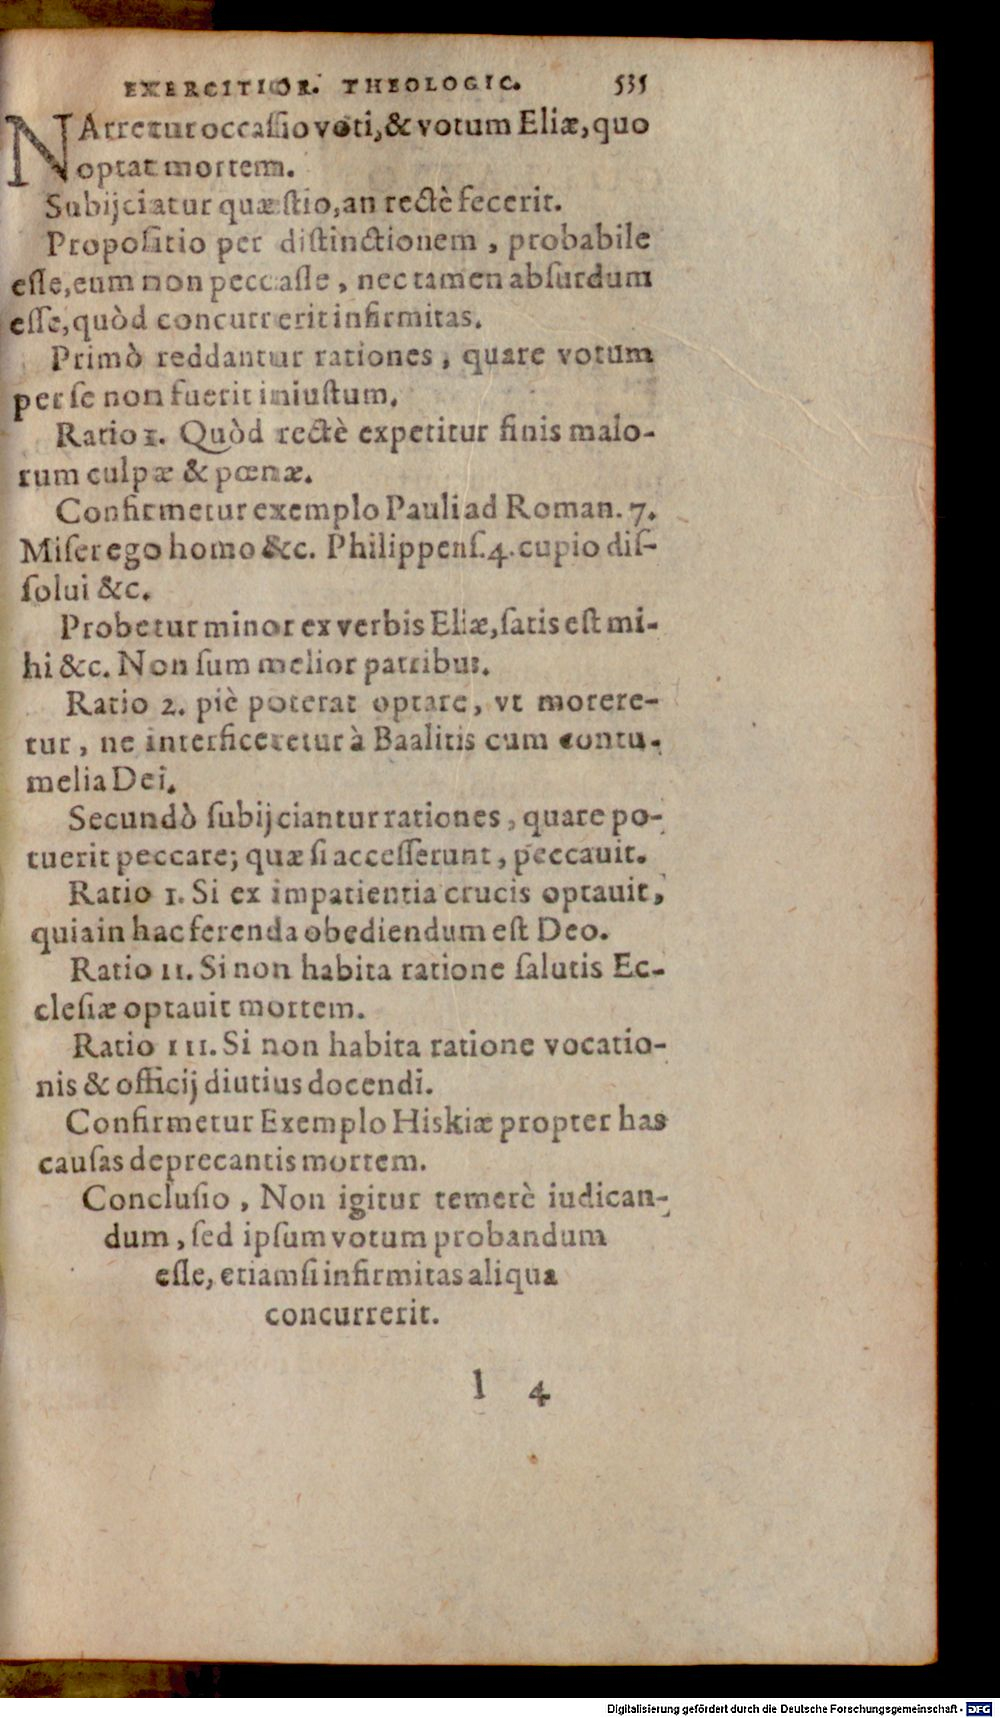 EXERCITIOR. THEOLOGIC. 535
NArretur occasſio voti, & votum Eliæ, quo
optat mortem.
Subijciatur quæſtio, an rectè fecerit.
Propoſitio per diſtinctionem, probabile
eſſe, eum non peccaſſe, nec tamen abſurdum
eſſe, quòd concurrerit infirmitas.
Primò reddantur rationes, quare votum
per ſe non fuerit iniuſtum.
Ratio 1. Quòd rectè expetitur finis malo-
rum culpæ & pœnæ.
Confirmetur exemplo Pauli ad Roman. 7.
Miſer ego homo &c. Philippenſ. 4. cupio diſ-
ſolui &c.
Probetur minor ex verbis Eliæ, ſatis eſt mi-
hi &c. Non ſum melior patribus.
Ratio 2. piè poterat optare, vt morere-
tur, ne interficeretur à Baalitis cum contu-
melia Dei.
Secundò ſubijciantur rationes, quare po-
tuerit peccare; quæ ſi acceſſerunt, peccauit.
Ratio 1. Si ex impatientia crucis optauit,
quia in hac ferenda obediendum eſt Deo.
Ratio 11. Si non habita ratione ſalutis Ec-
cleſiæ optauit mortem.
Ratio 111. Si non habita ratione vocatio-
nis & officij diutius docendi.
Confirmetur Exemplo Hiskiæ propter has
cauſas deprecantis mortem.
Concluſio, Non igitur temerè iudican-
dum, ſed ipſum votum probandum
eſſe, etiamſi infirmitas aliqua
concurrerit.
l 4
Digitalisierung gefördert durch die Deutsche Forschungsgemeinschaft - DFG